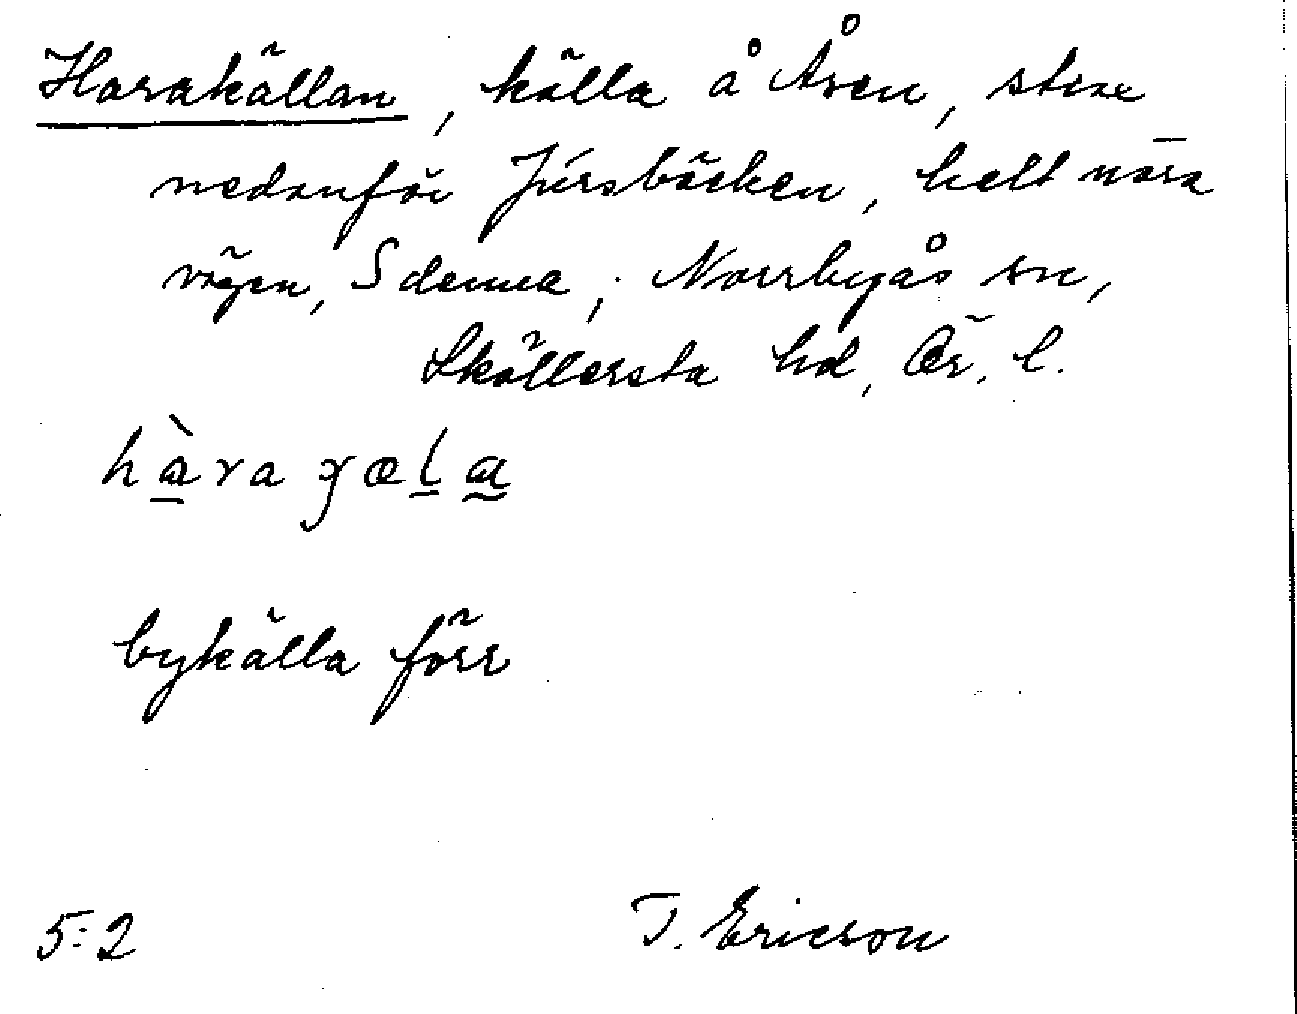 Harakällan, källa å Åsen, strax
nedanför Júrsbäcken, helt nära
vägen, S denna; Norrbyås sn,
Sköllersta hd, Ör. l.
hàra çæla
bykälla förr
5:2
T. Ericson